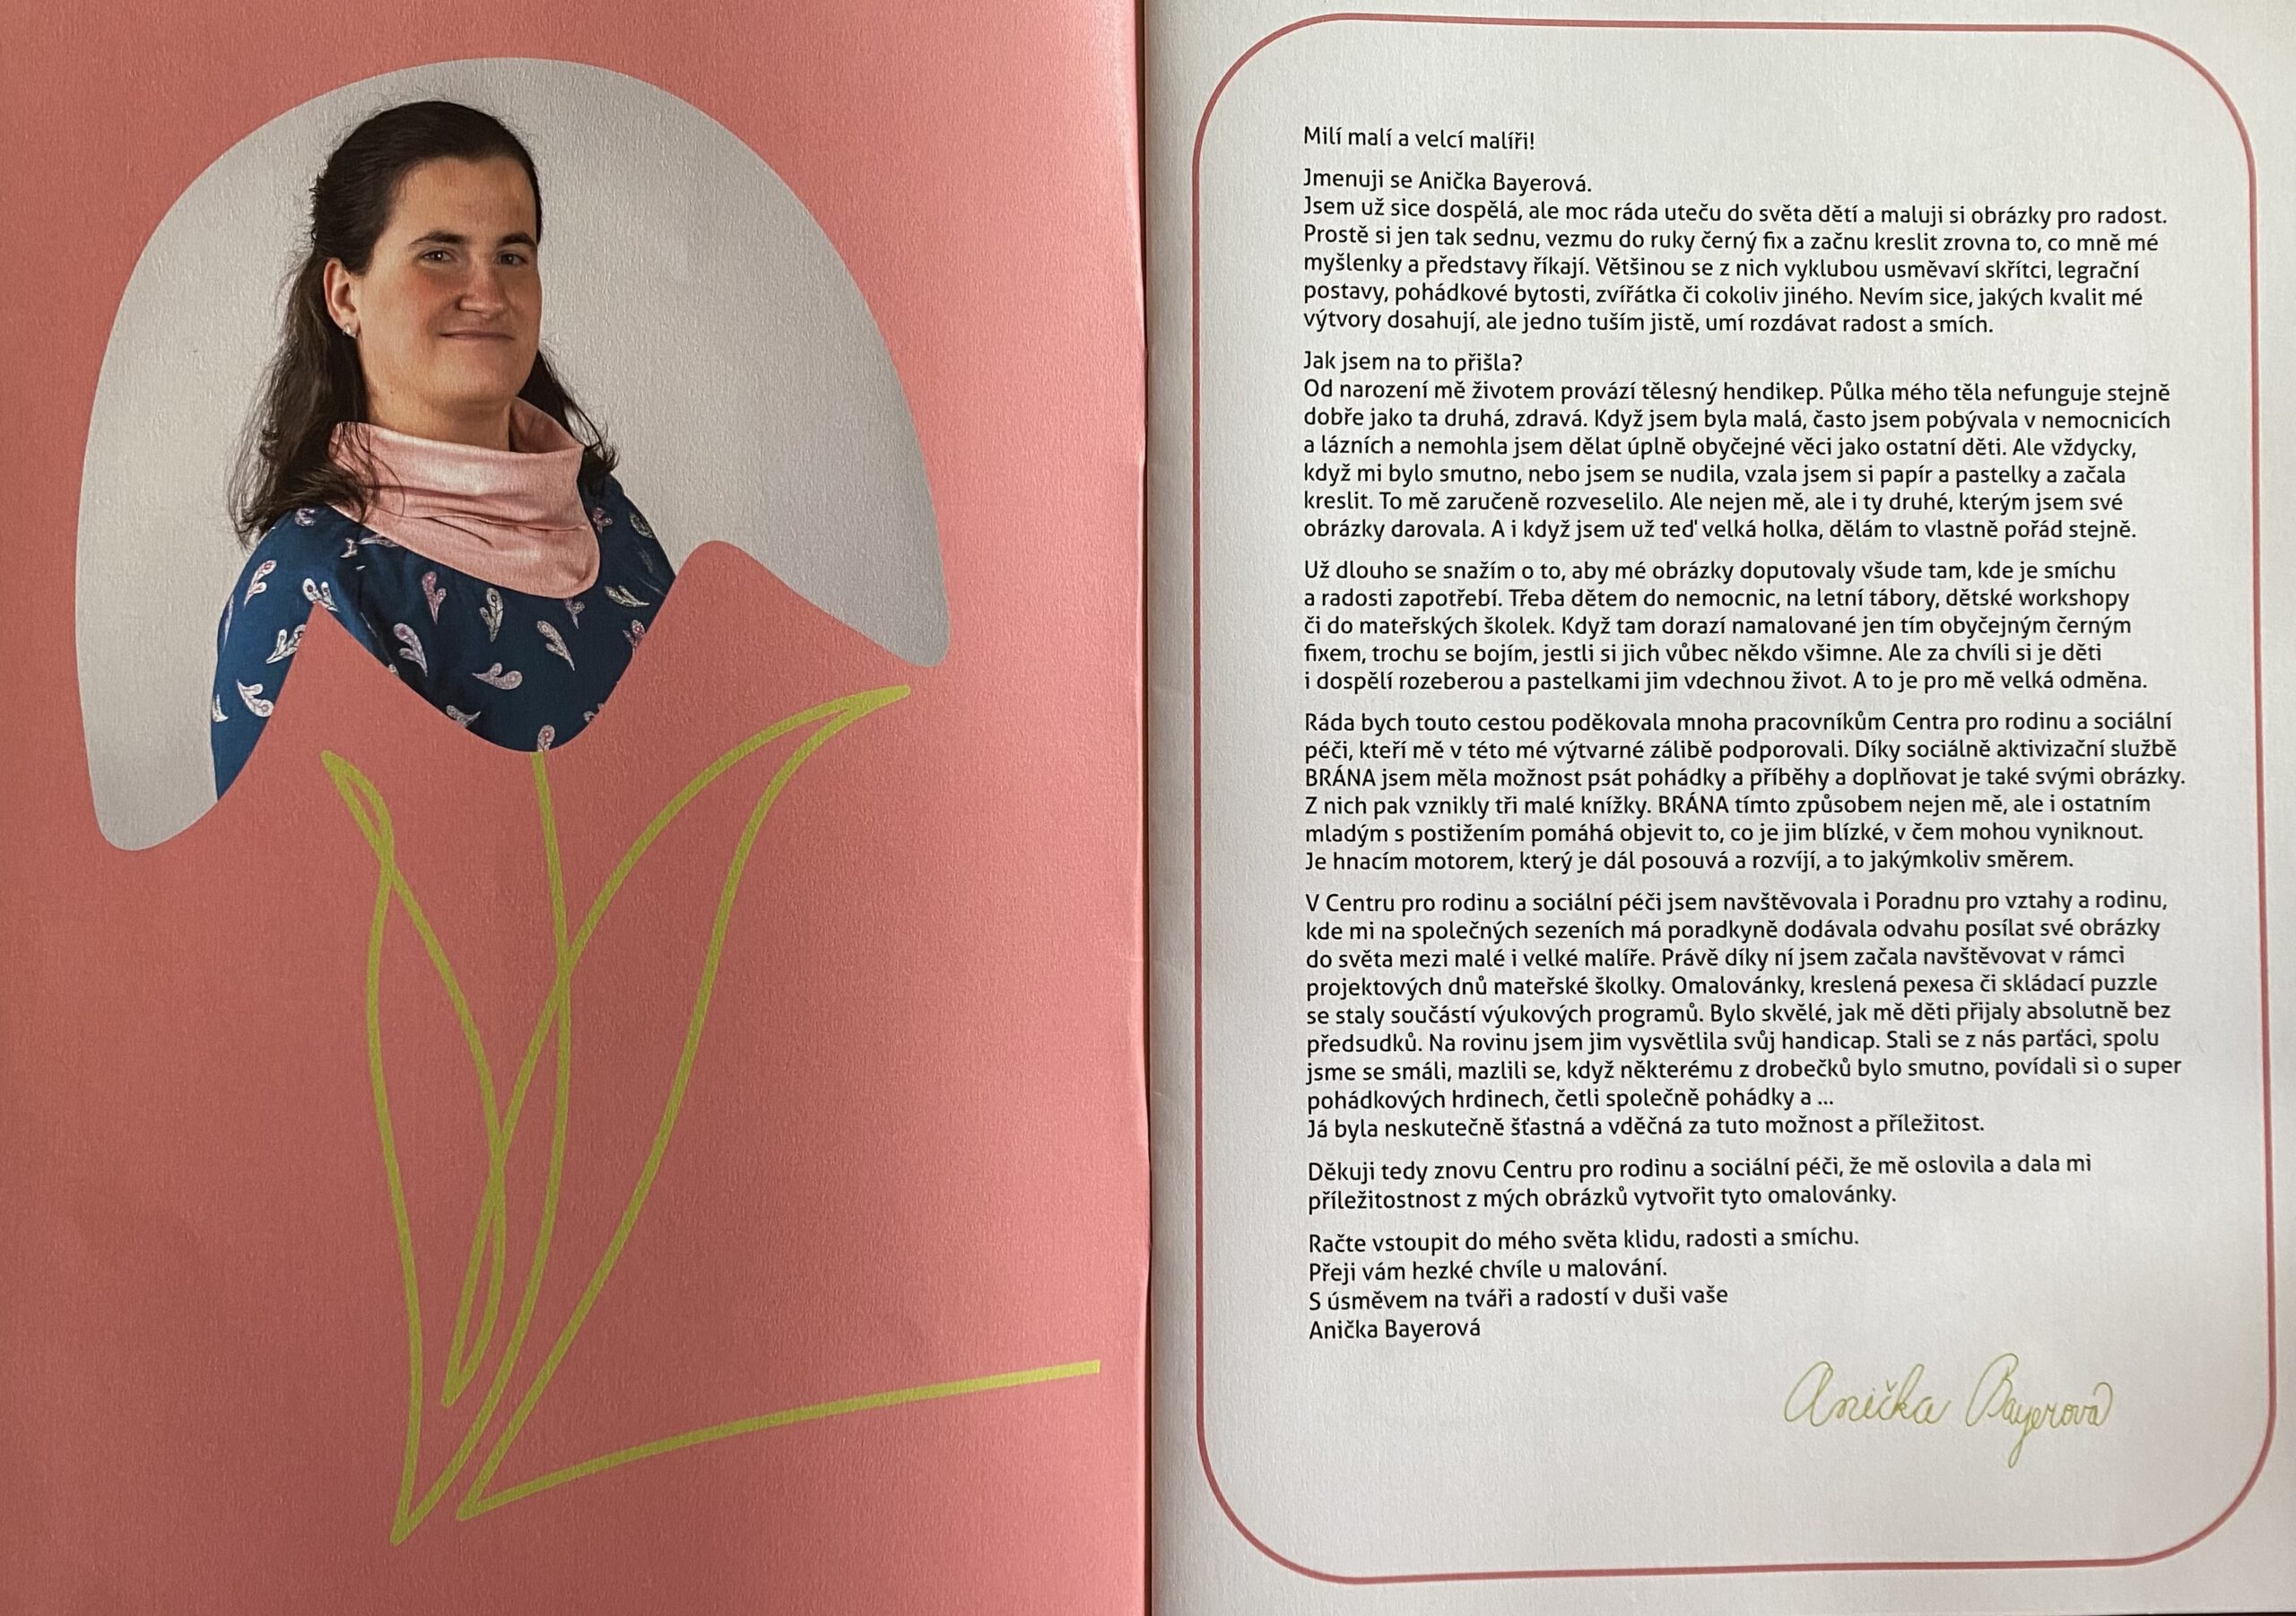 Milí malí a velcí malíři!
Jmenuji se Anička Bayerová.
Jsem už sice dospělá, ale moc ráda uteču do světa dětí a maluji si obrázky pro radost.
Prostě si jen tak sednu, vezmu do ruky černý fix a začnu kreslit zrovna to, co mně mé
myšlenky a představy říkají. Většinou se z nich vyklubou usměvaví skřítci, legrační
postavy, pohádkové bytosti, zvířátka či cokoliv jiného. Nevím sice, jakých kvalit mé
výtvory dosahují, ale jedno tuším jistě, umí rozdávat radost a smích.
Jak jsem na to přišla?
Od narození mě životem provází tělesný hendikep. Půlka mého těla nefunguje stejně
dobře jako ta druhá, zdravá. Když jsem byla malá, často jsem pobývala v nemocnicích
a lázních a nemohla jsem dělat úplně obyčejné věci jako ostatní děti. Ale vždycky,
když mi bylo smutno, nebo jsem se nudila, vzala jsem si papír a pastelky a začala
kreslit. To mě zaručeně rozveselilo. Ale nejen mě, ale i ty druhé, kterým jsem své
obrázky darovala. A i když jsem už teď velká holka, dělám to vlastně pořád stejně.
Už dlouho se snažím o to, aby mé obrázky doputovaly všude tam, kde je smíchu
a radosti zapotřebí. Třeba dětem do nemocnic, na letní tábory, dětské workshopy
či do mateřských školek. Když tam dorazí namalované jen tím obyčejným černým
fixem, trochu se bojím, jestli si jich vůbec někdo všimne. Ale za chvíli si je děti
i dospělí rozeberou a pastelkami jim vdechnou život. A to je pro mě velká odměna.
Ráda bych touto cestou poděkovala mnoha pracovníkům Centra pro rodinu a sociální
péči, kteří mě v této mé výtvarné zálibě podporovali. Díky sociálně aktivizační službě
BRÁNA jsem měla možnost psát pohádky a příběhy a doplňovat je také svými obrázky.
Z nich pak vznikly tři malé knížky. BRÁNA tímto způsobem nejen mě, ale i ostatním
mladým s postižením pomáhá objevit to, co je jim blízké, v čem mohou vyniknout.
Je hnacím motorem, který je dál posouvá a rozvíjí, a to jakýmkoliv směrem.
V Centru pro rodinu a sociální péči jsem navštěvovala i Poradnu pro vztahy a rodinu,
kde mi na společných sezeních má poradkyně dodávala odvahu posílat své obrázky
do světa mezi malé i velké malíře. Právě díky ní jsem začala navštěvovat v rámci
projektových dnů mateřské školky. Omalovánky, kreslená pexesa či skládací puzzle
se staly součástí výukových programů. Bylo skvělé, jak mě děti přijaly absolutně bez
předsudků. Na rovinu jsem jim vysvětlila svůj handicap. Stali se z nás parťáci, spolu
jsme se smáli, mazlili se, když některému z drobečků bylo smutno, povídali si o super
pohádkových hrdinech, četli společně pohádky a ...
Já byla neskutečně šťastná a vděčná za tuto možnost a příležitost.
Děkuji tedy znovu Centru pro rodinu a sociální péči, že mě oslovila a dala mi
příležitostnost z mých obrázků vytvořit tyto omalovánky.
Račte vstoupit do mého světa klidu, radosti a smíchu.
Přeji vám hezké chvíle u malování.
S úsměvem na tváři a radostí v duši vaše
Anička Bayerová
Anička Bayerová